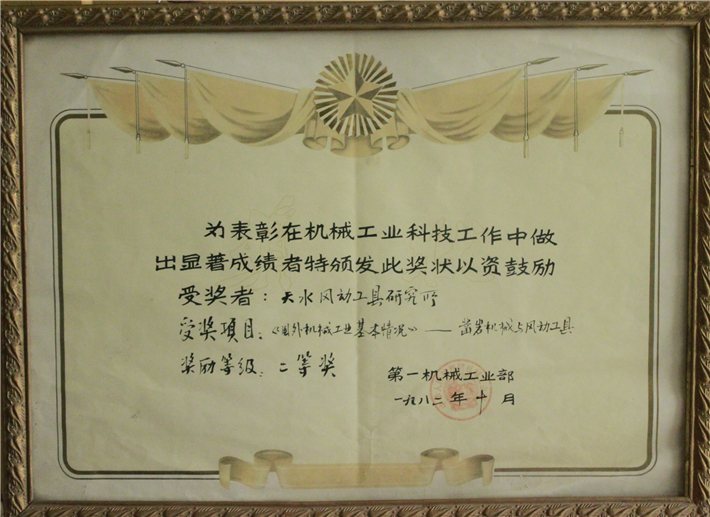 为表彰在机械工业科技工作中做
出显著成绩者特颁发此奖状以资鼓励
受奖者：天水风动工具研究所
受奖项目：《国外机械工业基本情况》——凿岩机械与风动工具
奖励等级：二等奖
第一机械工业部
一九八二年十月